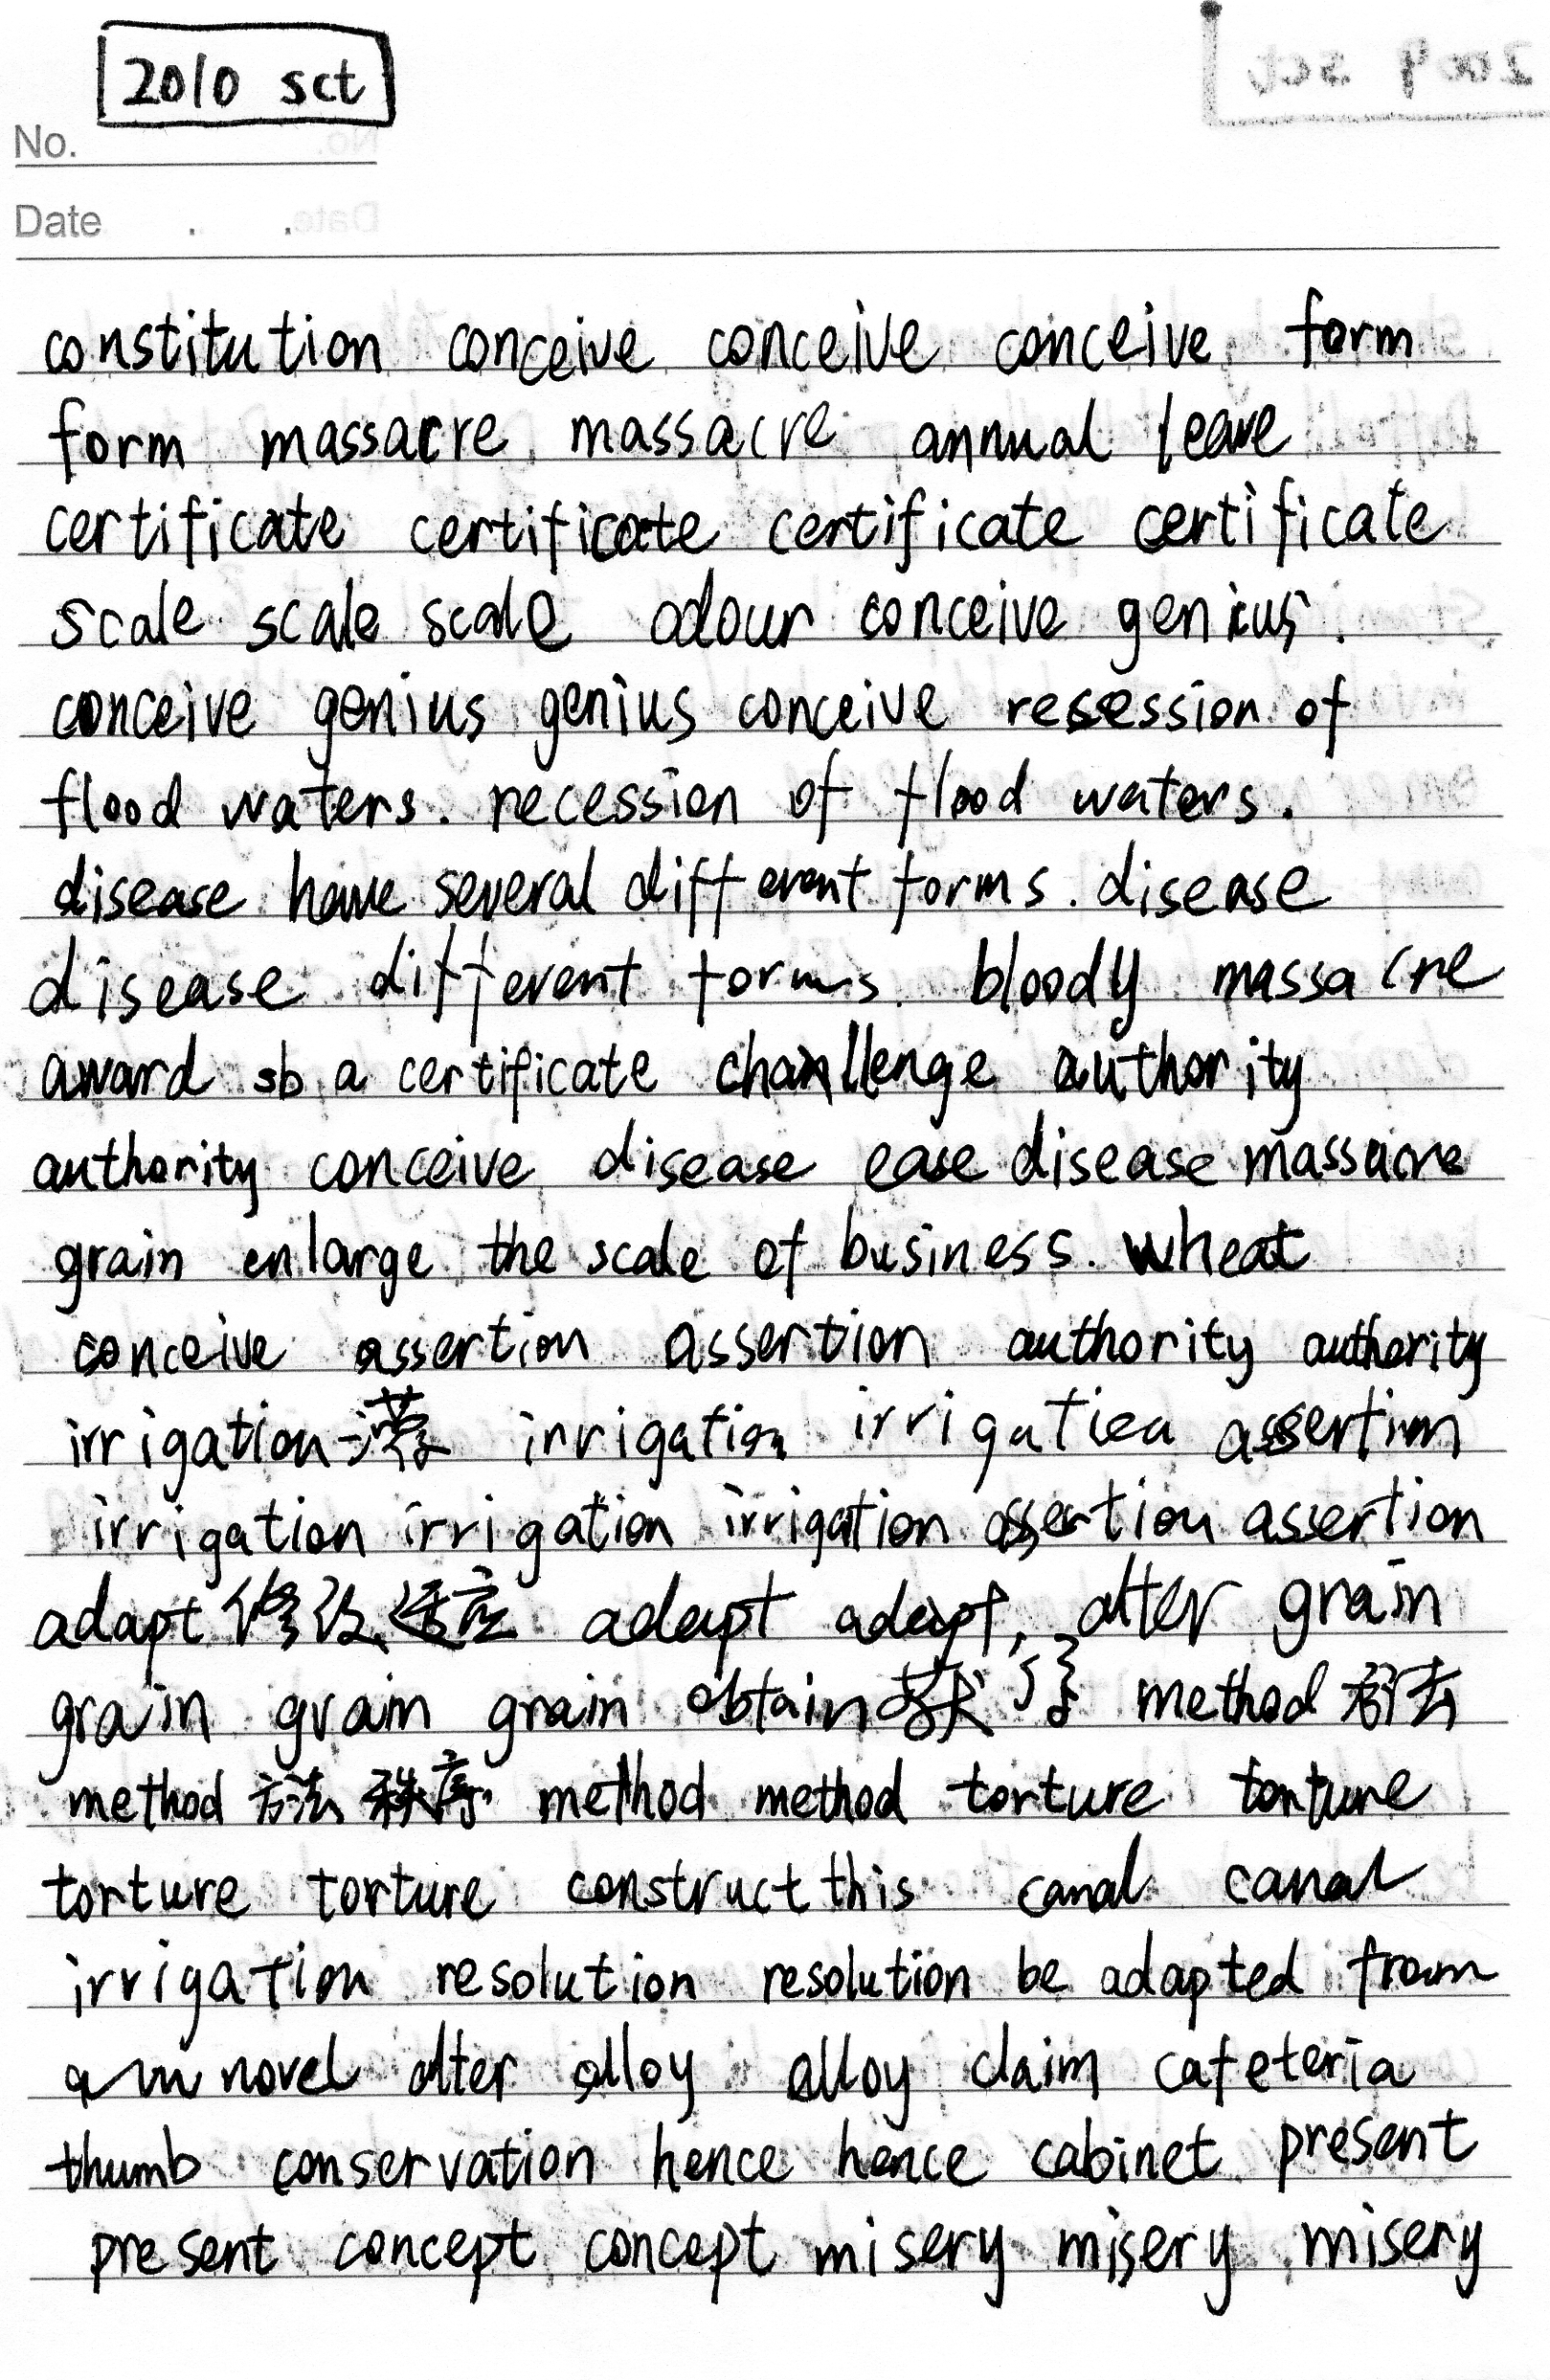 2010 sct
No.
Date . .
constitution conceive conceive conceive form
form massacre massacre annual leave
certificate certificate certificate certificate
scale scale scale odour conceive genius.
conceive genius genius conceive resession of
flood waters. recession of flood waters.
disease have several different forms. disease
disease different forms. bloody massacre
award sb a certificate chanllenge authority
authority conceive disease ease disease massacre
grain enlarge the scale of business. wheat
conceive assertion assertion authority authority
irrigation irrigation irrigation assertion
irrigation irrigation irrigation assertion assertion
adapt 修改、适应 adapt adapt, alter grain
grain grain grain obtain 获得 method 方法
method 方法 秩序 method method torture torture
torture torture construct this canal canal
irrigation resolution resolution be adapted from
a novel alter alloy alloy claim cafeteria
thumb conservation hence hence cabinet present
present concept concept misery misery misery